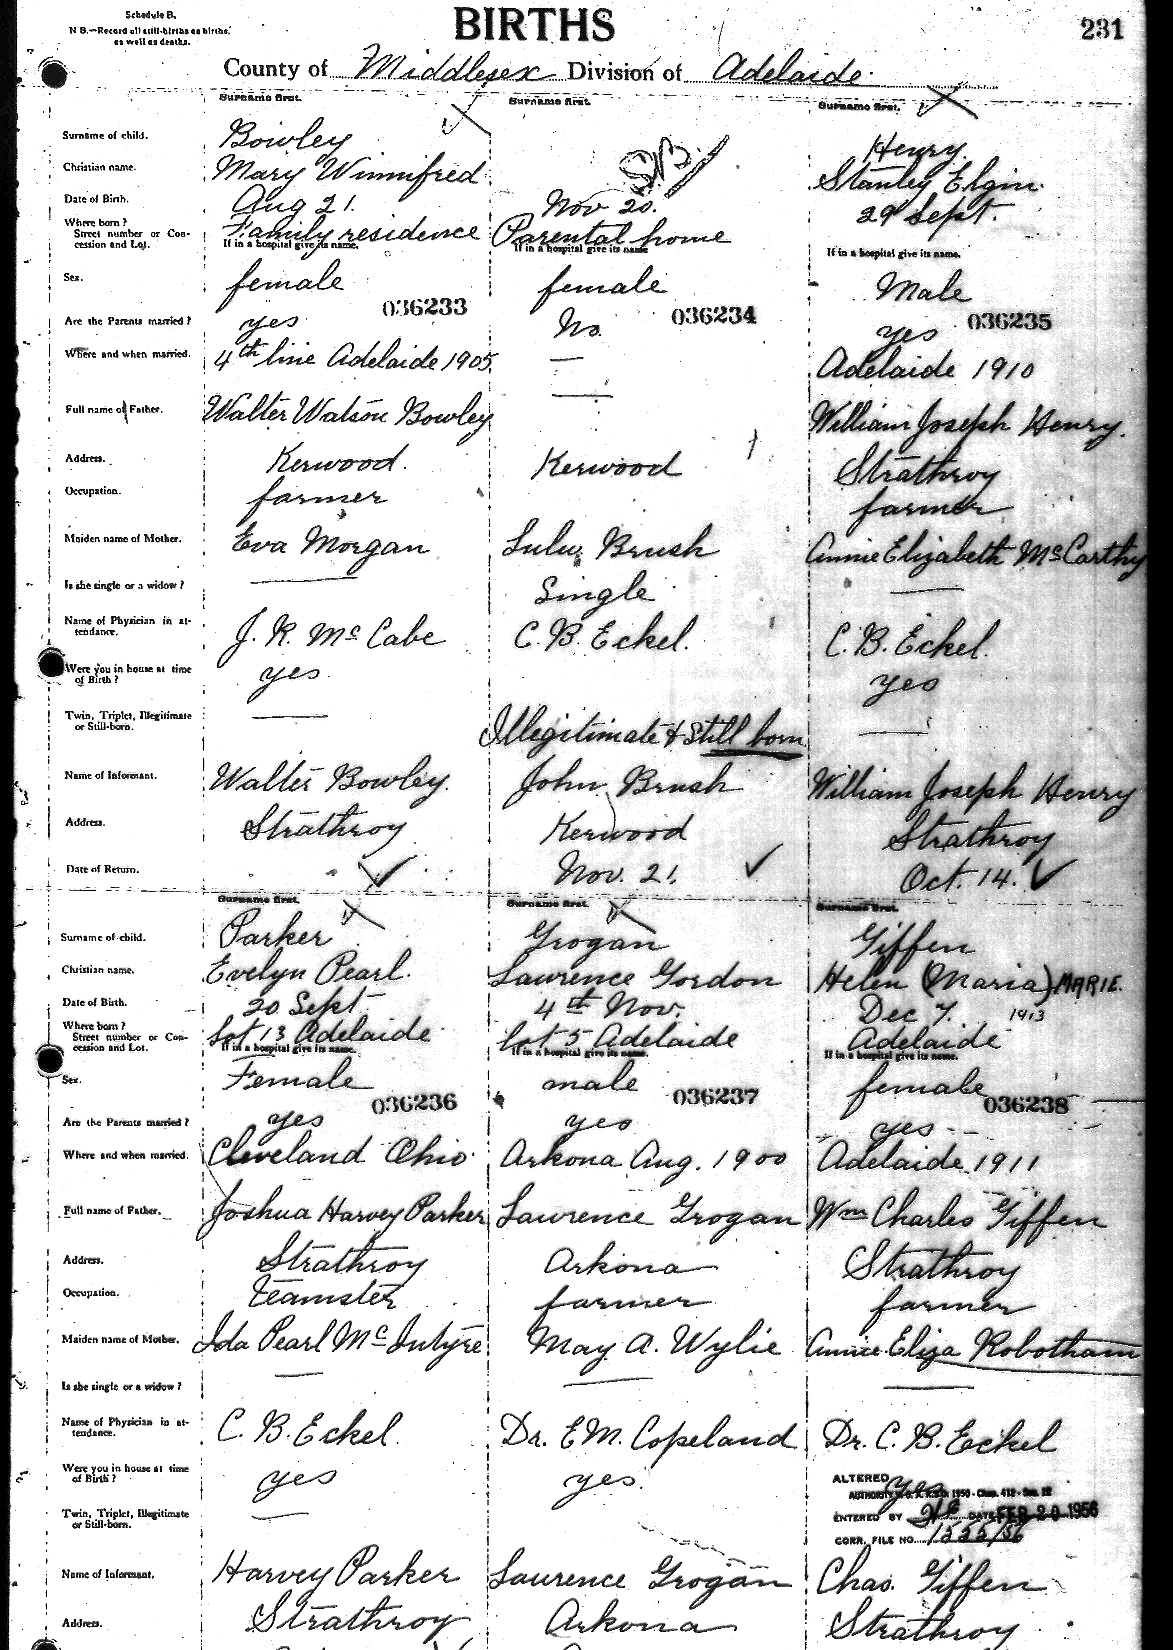 Schedule B.
N B.—Record all still-births as births,
as well as deaths.
BIRTHS
231
County of Middlesex Division of Adelaide.
Surname first. Surname first. Surname first.
Surname of child. Bowley S.B. Henry
Christian name. Mary Winnifred Stanley Elgin.
Date of Birth. Aug 21. Nov 20. 29 Sept.
Where born? Family residence Parental home
Street number or Con-
cession and Lot. If in a hospital give its name. If in a hospital give its name If in a hospital give its name.
Sex. female female Male
036233 036234 036235
Are the Parents married? yes No. yes
Where and when married. 4th line Adelaide 1905. — Adelaide 1910
Full name of Father. Walter Watson Bowley — William Joseph Henry.
Address. Kerwood. Kerwood Strathroy
Occupation. farmer farmer
Maiden name of Mother. Eva Morgan Lulu Brush Annie Elizabeth McCarthy
Is she single or a widow? — Single —
Name of Physician in at-
tendance. J. R. McCabe C. B. Eckel. C. B. Eckel.
Were you in house at time
of Birth? yes yes
Twin, Triplet, Illegitimate
or Still-born. — Illegitimate & Still born —
Name of Informant. Walter Bowley. John Brush William Joseph Henry
Address. Strathroy Kerwood Strathroy
Date of Return. Nov. 21. Oct. 14.
Surname first. Surname first. Surname first.
Surname of child. Parker Grogan Giffen
Christian name. Evelyn Pearl. Lawrence Gordon Helen (Maria) MARIE.
Date of Birth. 20 Sept. 4th Nov. Dec 7. 1913
Where born? Lot 13 Adelaide Lot 5 Adelaide Adelaide
Street number or Con-
cession and Lot. If in a hospital give its name. If in a hospital give its name. If in a hospital give its name.
Sex. Female male female
036236 036237 036238
Are the Parents married? yes yes yes
Where and when married. Cleveland Ohio Arkona Aug. 1900 Adelaide 1911
Full name of Father. Joshua Harvey Parker Lawrence Grogan Wm Charles Giffen
Address. Strathroy Arkona Strathroy
Occupation. teamster farmer farmer
Maiden name of Mother. Ida Pearl McIntyre May A. Wylie Annie Eliza Robotham
Is she single or a widow? — — —
Name of Physician in at-
tendance. C. B. Eckel Dr. E M. Copeland Dr. C. B. Eckel
Were you in house at time
of Birth? yes yes. yes
ALTERED
AUTHORITY 1950 - Chap. 412 - Sec.
Twin, Triplet, Illegitimate
or Still-born. — ENTERED BY DATE FEB 20 1956
CORR. FILE NO. 1555/56
Name of Informant. Harvey Parker Lawrence Grogan Chas. Giffen
Address. Strathroy Arkona Strathroy